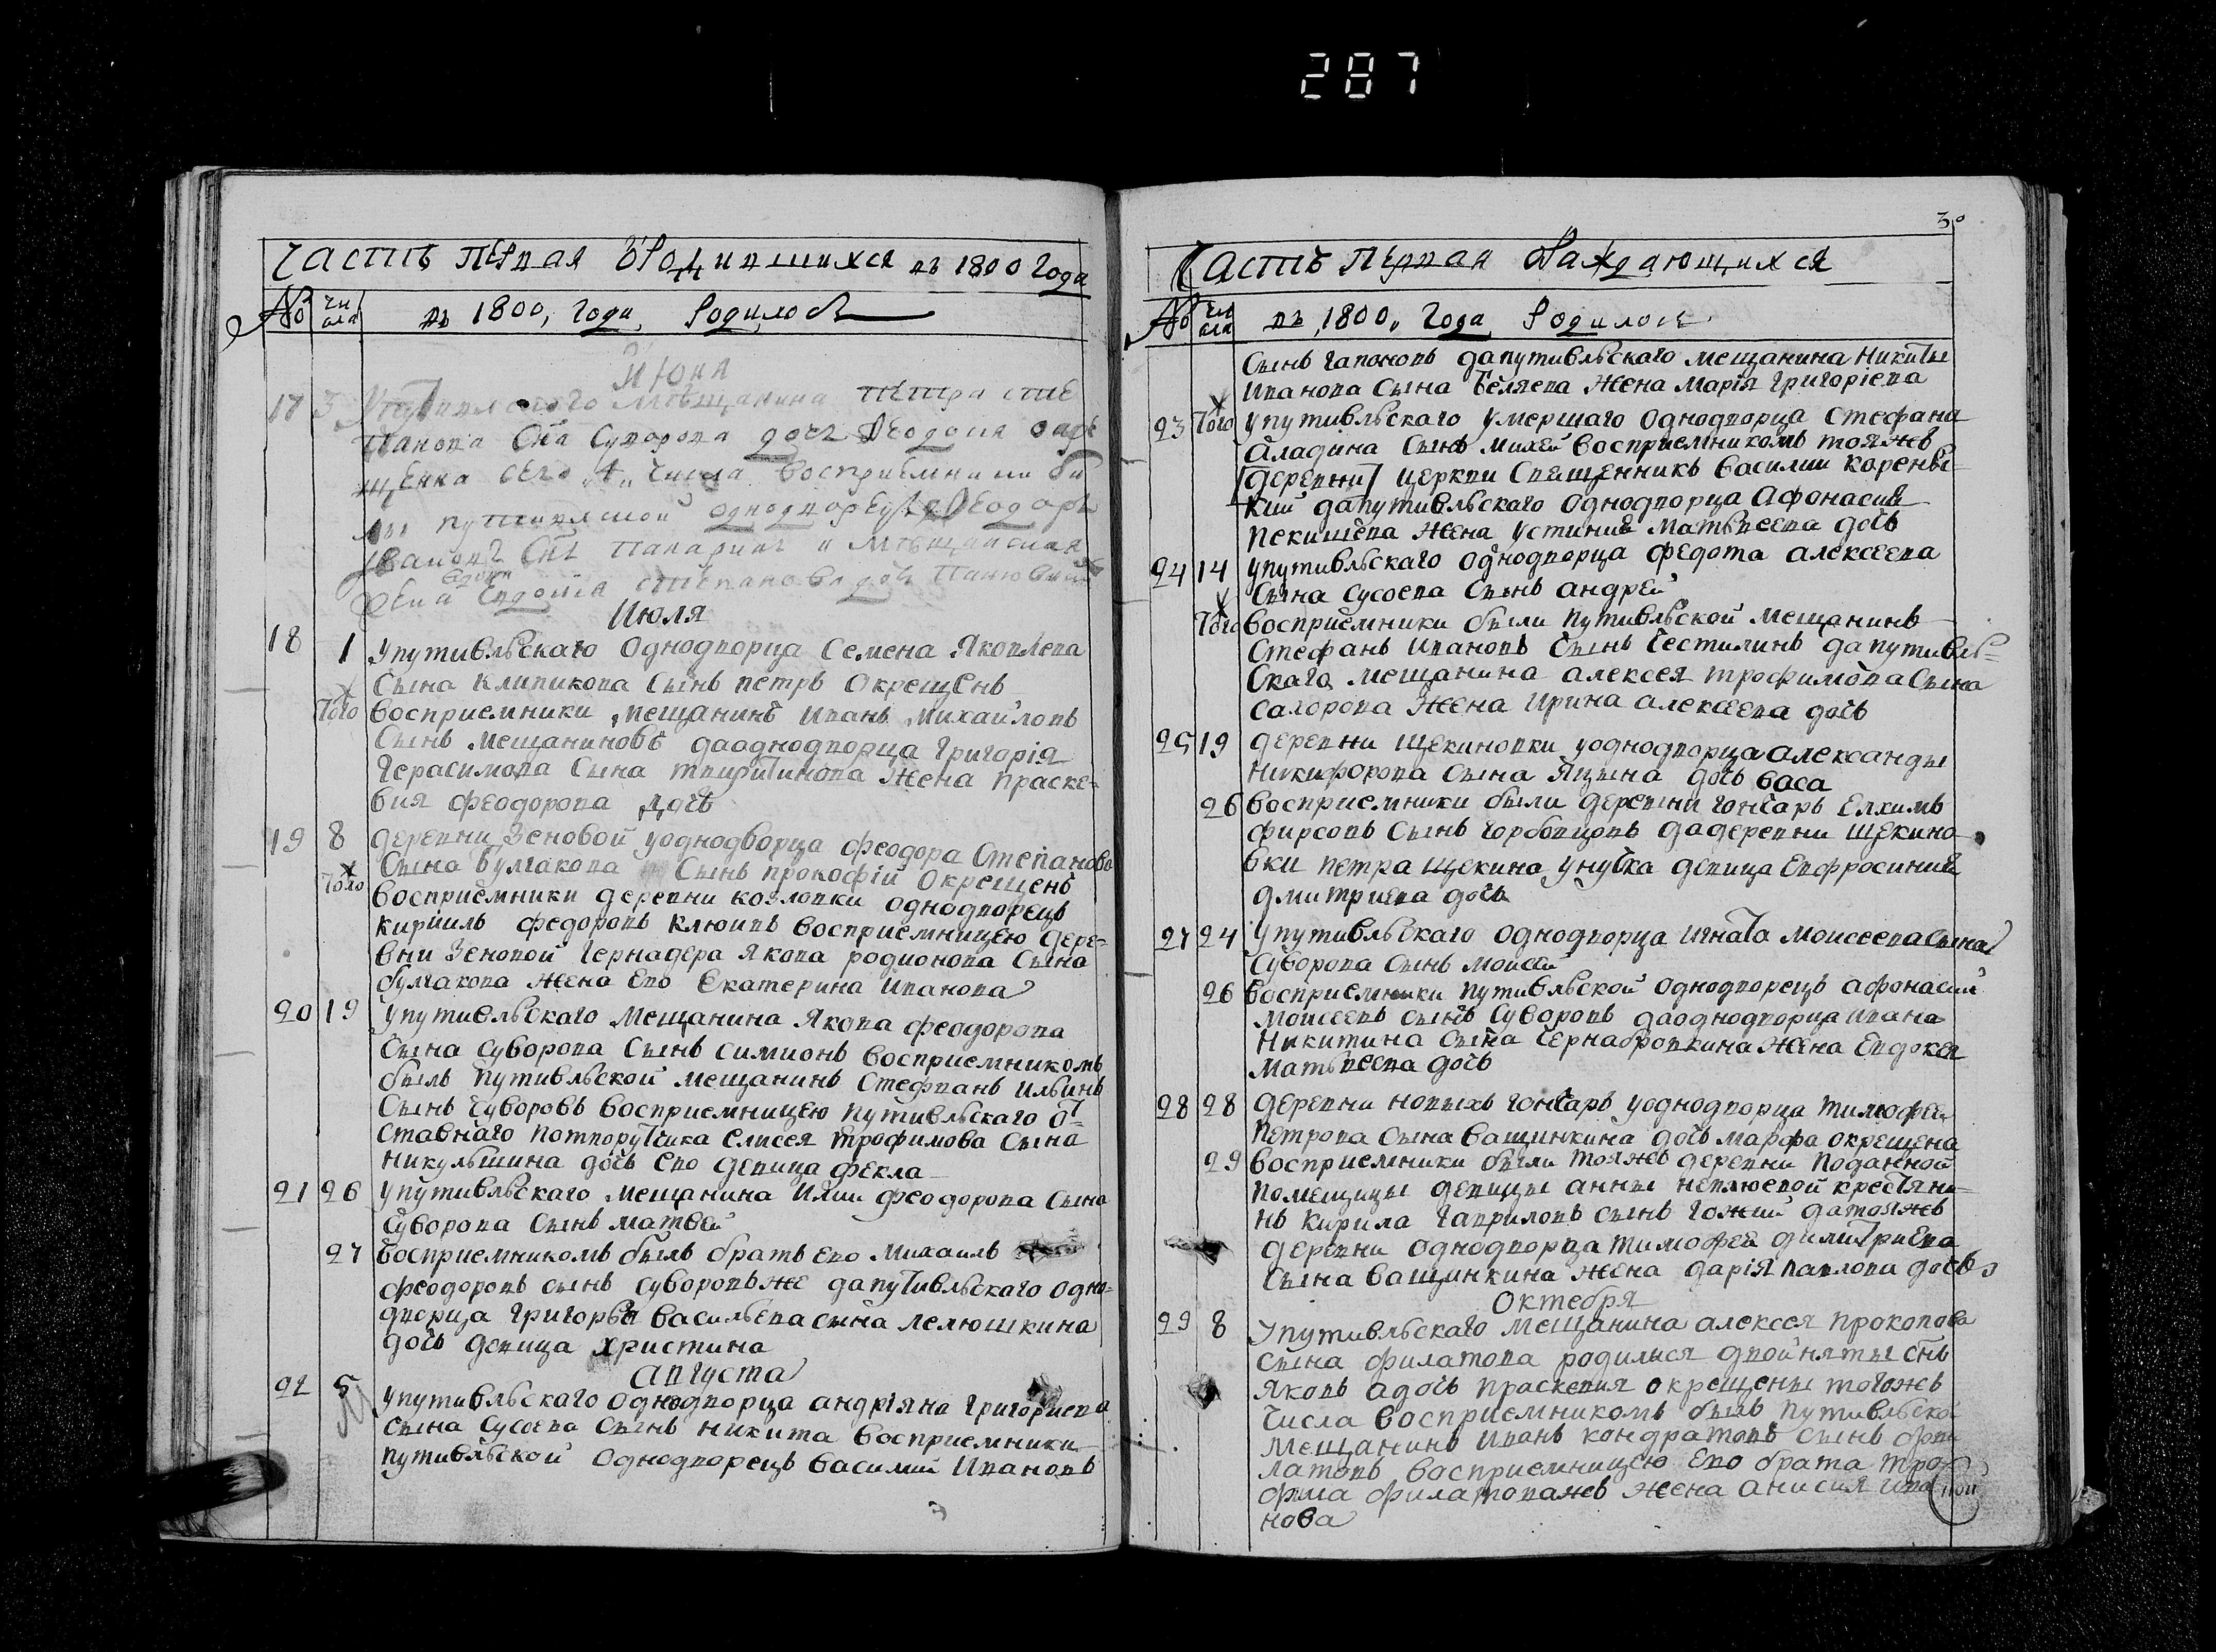 287
Часть первая о родившихся въ 1800 Года
№ чи
сла въ 1800, Года, Родилось
Июня
17 3 Упутивлского Мещанина Петра Сте
панова Сна Суворова дочь Феодосия
сего 4 числа восприемники бы
ли путивлской однодворец Феодоръ
Сна и Мещанская
Евдокия Степанова дочь
Июля
18 1 Упутивльскаго Однодворца Семена Яковлева
Сына Кливикова Сынъ петръ Окрещенъ
Того восприемники, мещанинъ Иванъ Михайловъ
Сынъ Мещаниновъ даоднодворца Григорія
Герасимова Сына Жена Праске-
вия феодорова дочь
19 8 деревни Зеновой уоднодворца феодора Степанова
Сына булгакова Сынъ прокофій Окрещенъ
Того восприемники деревни козловки однодворецъ
кирийлъ федоровъ клюивъ восприемницею дере-
вни Зеновой Якова родионова Сына
булгакова жена Ево Екатерина Иванова
20 19 Упутивльскаго Мещанина Якова феодорова
Сына Суворова Сынъ симионъ восприемникомъ
былъ Путивльской мещанинъ Стефанъ Ильинъ
Сынъ Суворовъ восприемницею Путивльскаго от-
ставнаго Потпорутчика Елисея Трофимова Сына
Никульшина дочь Ево девица фекла
21 26 Упутивльскаго Мещанина Илии феодорова Сына
Суворова Сынъ матвей
27 Восприемникомъ былъ братъ Ево Михаилъ
феодоровъ сынъ Суворовъже дапутивльскаго одно-
дворца Григорья Васильева сына лелюшкина
дочь девица христина
Августа
22 5 упутивльскаго Однодворца андріяна Григориева
сына Сусоева Сынъ никита Восприемники
путивльской Однодворецъ Василий Ивановъ
30
Часть Первая Раждающихся
№ чи
сла въ, 1800,, Года, Родилось
Сынъ Гапоновъ дапутивльскаго мещанина Никиты
Иванова Сына Беляева Жена Марія Григоріева
23 Того Упутивльскаго Умершаго Однодворца Стефана
Аладина Сынъ михей Восприемникомъ тояжъ
деревни церкви Священникъ Василии кореньс-
кий дапутивльскаго Однодворца Афонасия
Пекишева жена Устиния Матьвеева дочь
24 14 упутивльскаго Однодворца федота алексеева
Сына Сусоева Сынъ андрей
Того восприемники были Путивльской Мещанинъ
Стефанъ Ивановъ Сынъ Честилинъ да путивль-
Скаго, мещанина алексея трофимова Сына
Саморова Жена Ирина алексеева дочь
25 19 деревни Щекиновки уоднодворца александы
Никифорова Сына Яцына дочь Васа
26 восприемники были деревни гончаръ Елхимъ
фирсовъ Сынъ горбовцовъ дадеревни Щекино
вки Петра Щекина унучка девица Евфросиния
дмитриева дочь
27 24 Упутивльскаго Однодворца Игната Моисеева Сына
Суворова Сынъ моисей
26 восприемники Путивльской Однодворецъ афонасий
Моисеевъ сынъ Суворовъ даоднодворца ивана
Никитина Сына Чернабровкина жена Евдокея
Матьвеева дочь
28 28 деревни новыхъ гончаръ уоднодворца тимофея
Петрова Сына Ващинкина дочь марфа окрещена
29 восприемники были тояжъ деревни Поданной
Помещицы девицы анны неплюевой крестяни
нъ Кирила Гавриловъ сынъ Гожий датояжъ
деревни Однодворца Тимофея димитриева
Сына Ващинкина Жена дарія павлова дочь
Октебря
29 8 Упутивльскаго мещанина алексея Прокопова
сына филатова родилися двойняты снъ
Яковъ адочь Праскевия окрещены тогожъ
Числа восприемникомъ былъ путивльско
мещанинъ Иванъ Кондратовъ сынъ фи
латовъ восприемницею Ево брата Тро
фима филатоважъ Жена анисия ива
нова